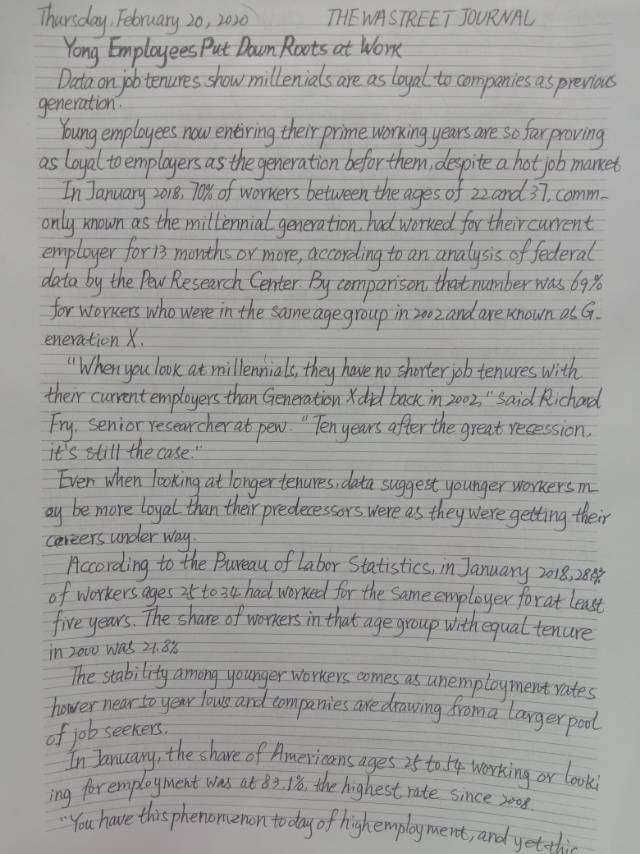 Thursday, February 20, 2020 THE WASTREET JOURNAL
Yong Employees Put Down Roots at Work
Data on job tenures show millenials are as loyal to companies as previous
generation.
Young employees now entiring their prime working years are so far proving
as loyal to employers as the generation befor them, despite a hot job market
In January 2018, 70% of workers between the ages of 22 and 37, comm-
only known as the millennial generation, had worked for their current
employer for 13 months or more, according to an analysis of federal
data by the Pew Research Center. By comparison, that number was 69%
for workers who were in the same age group in 2002 and are known as G-
eneration X.
"When you look at millennials, they have no shorter job tenures with
their current employers than Generation X did back in 2002," said Richard
Fry, senior researcher at pew. "Ten years after the great recession,
it's still the case."
Even when looking at longer tenures, data suggest younger workers m-
ay be more loyal than their predecessors were as they were getting their
careers under way.
According to the Bureau of Labor Statistics, in January 2018,
of workers ages 25 to 34 had worked for the same employer for at least
five years. The share of workers in that age group with equal tenure
in 2000 was 21.8%
The stability among younger workers comes as unemployment rates
hower near 50 year lows and companies are drawing from a larger pool
of job seekers.
In January, the share of Americans ages 25 to 54 working or looki
ing for employment was at 83.1%, the highest rate since 2008.
"You have this phenomenon today of high employment, and yet this